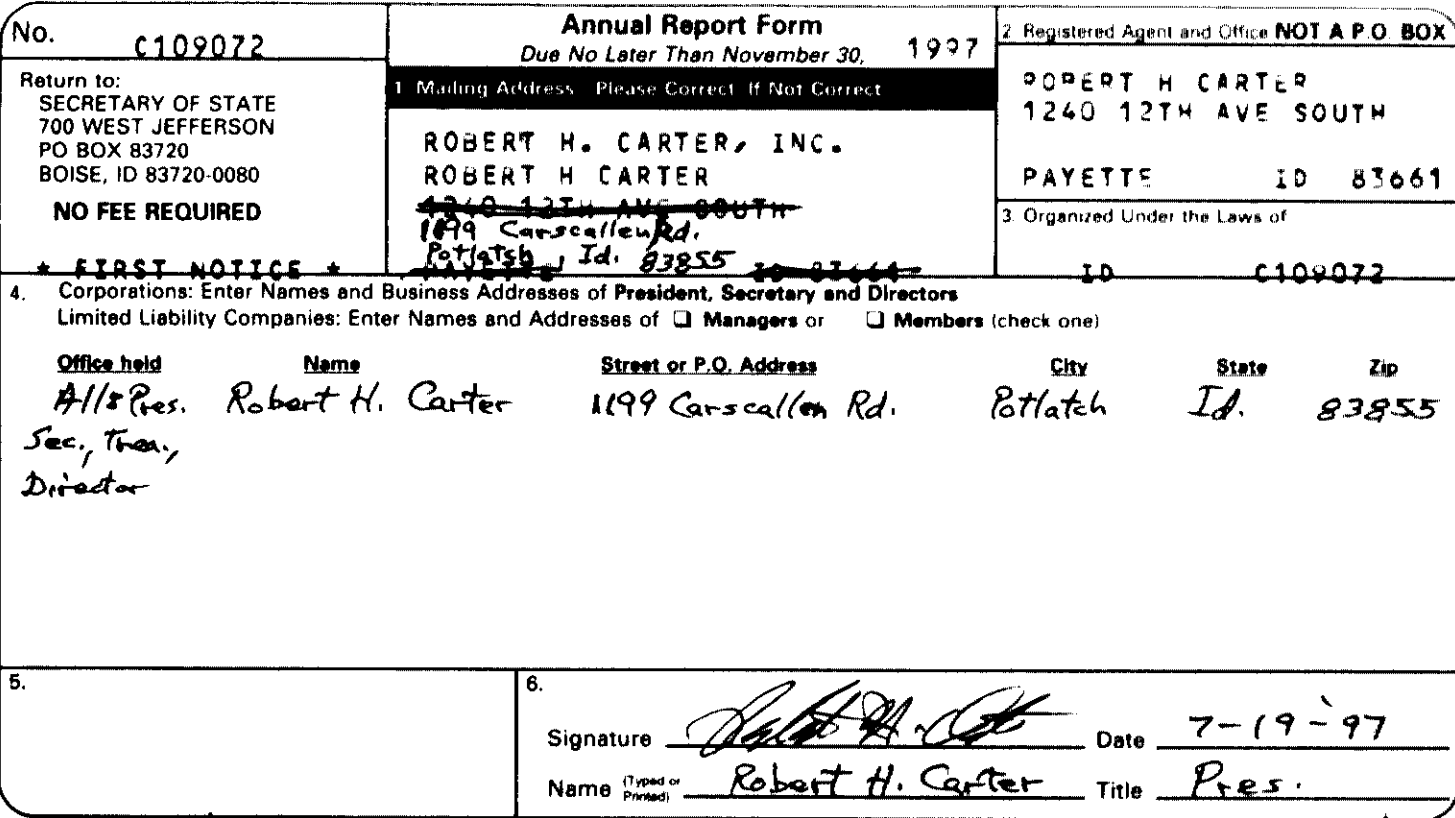 No. C109072
Return to:
SECRETARY OF STATE
700 WEST JEFFERSON
PO BOX 83720
BOISE, ID 83720-0080
NO FEE REQUIRED
* FIRST NOTICE *
Annual Report Form
Due No Later Than November 30, 1997
1 Mailing Address Please Correct If Not Correct
ROBERT H. CARTER, INC.
ROBERT H CARTER
1240 12TH AVE SOUTH
1199 Carscallen Rd.
Potlatch, Id. 83855
PAYETTE ID 83661
2 Registered Agent and Office NOT A P.O. BOX
ROBERT H CARTER
1240 12TH AVE SOUTH
PAYETTE ID 83661
3. Organized Under the Laws of
ID C109072
4. Corporations: Enter Names and Business Addresses of President, Secretary and Directors
Limited Liability Companies: Enter Names and Addresses of ❑ Managers or ❑ Members (check one)
Office held Name Street or P.O. Address City State Zip
Pres. Robert H. Carter 1199 Carscallen Rd. Potlatch Id. 83855
Sec., Trea.,
Director
5.
6.
Signature Robert H. Carter Date 7-19-97
Name (Typed or Printed) Robert H. Carter Title Pres.